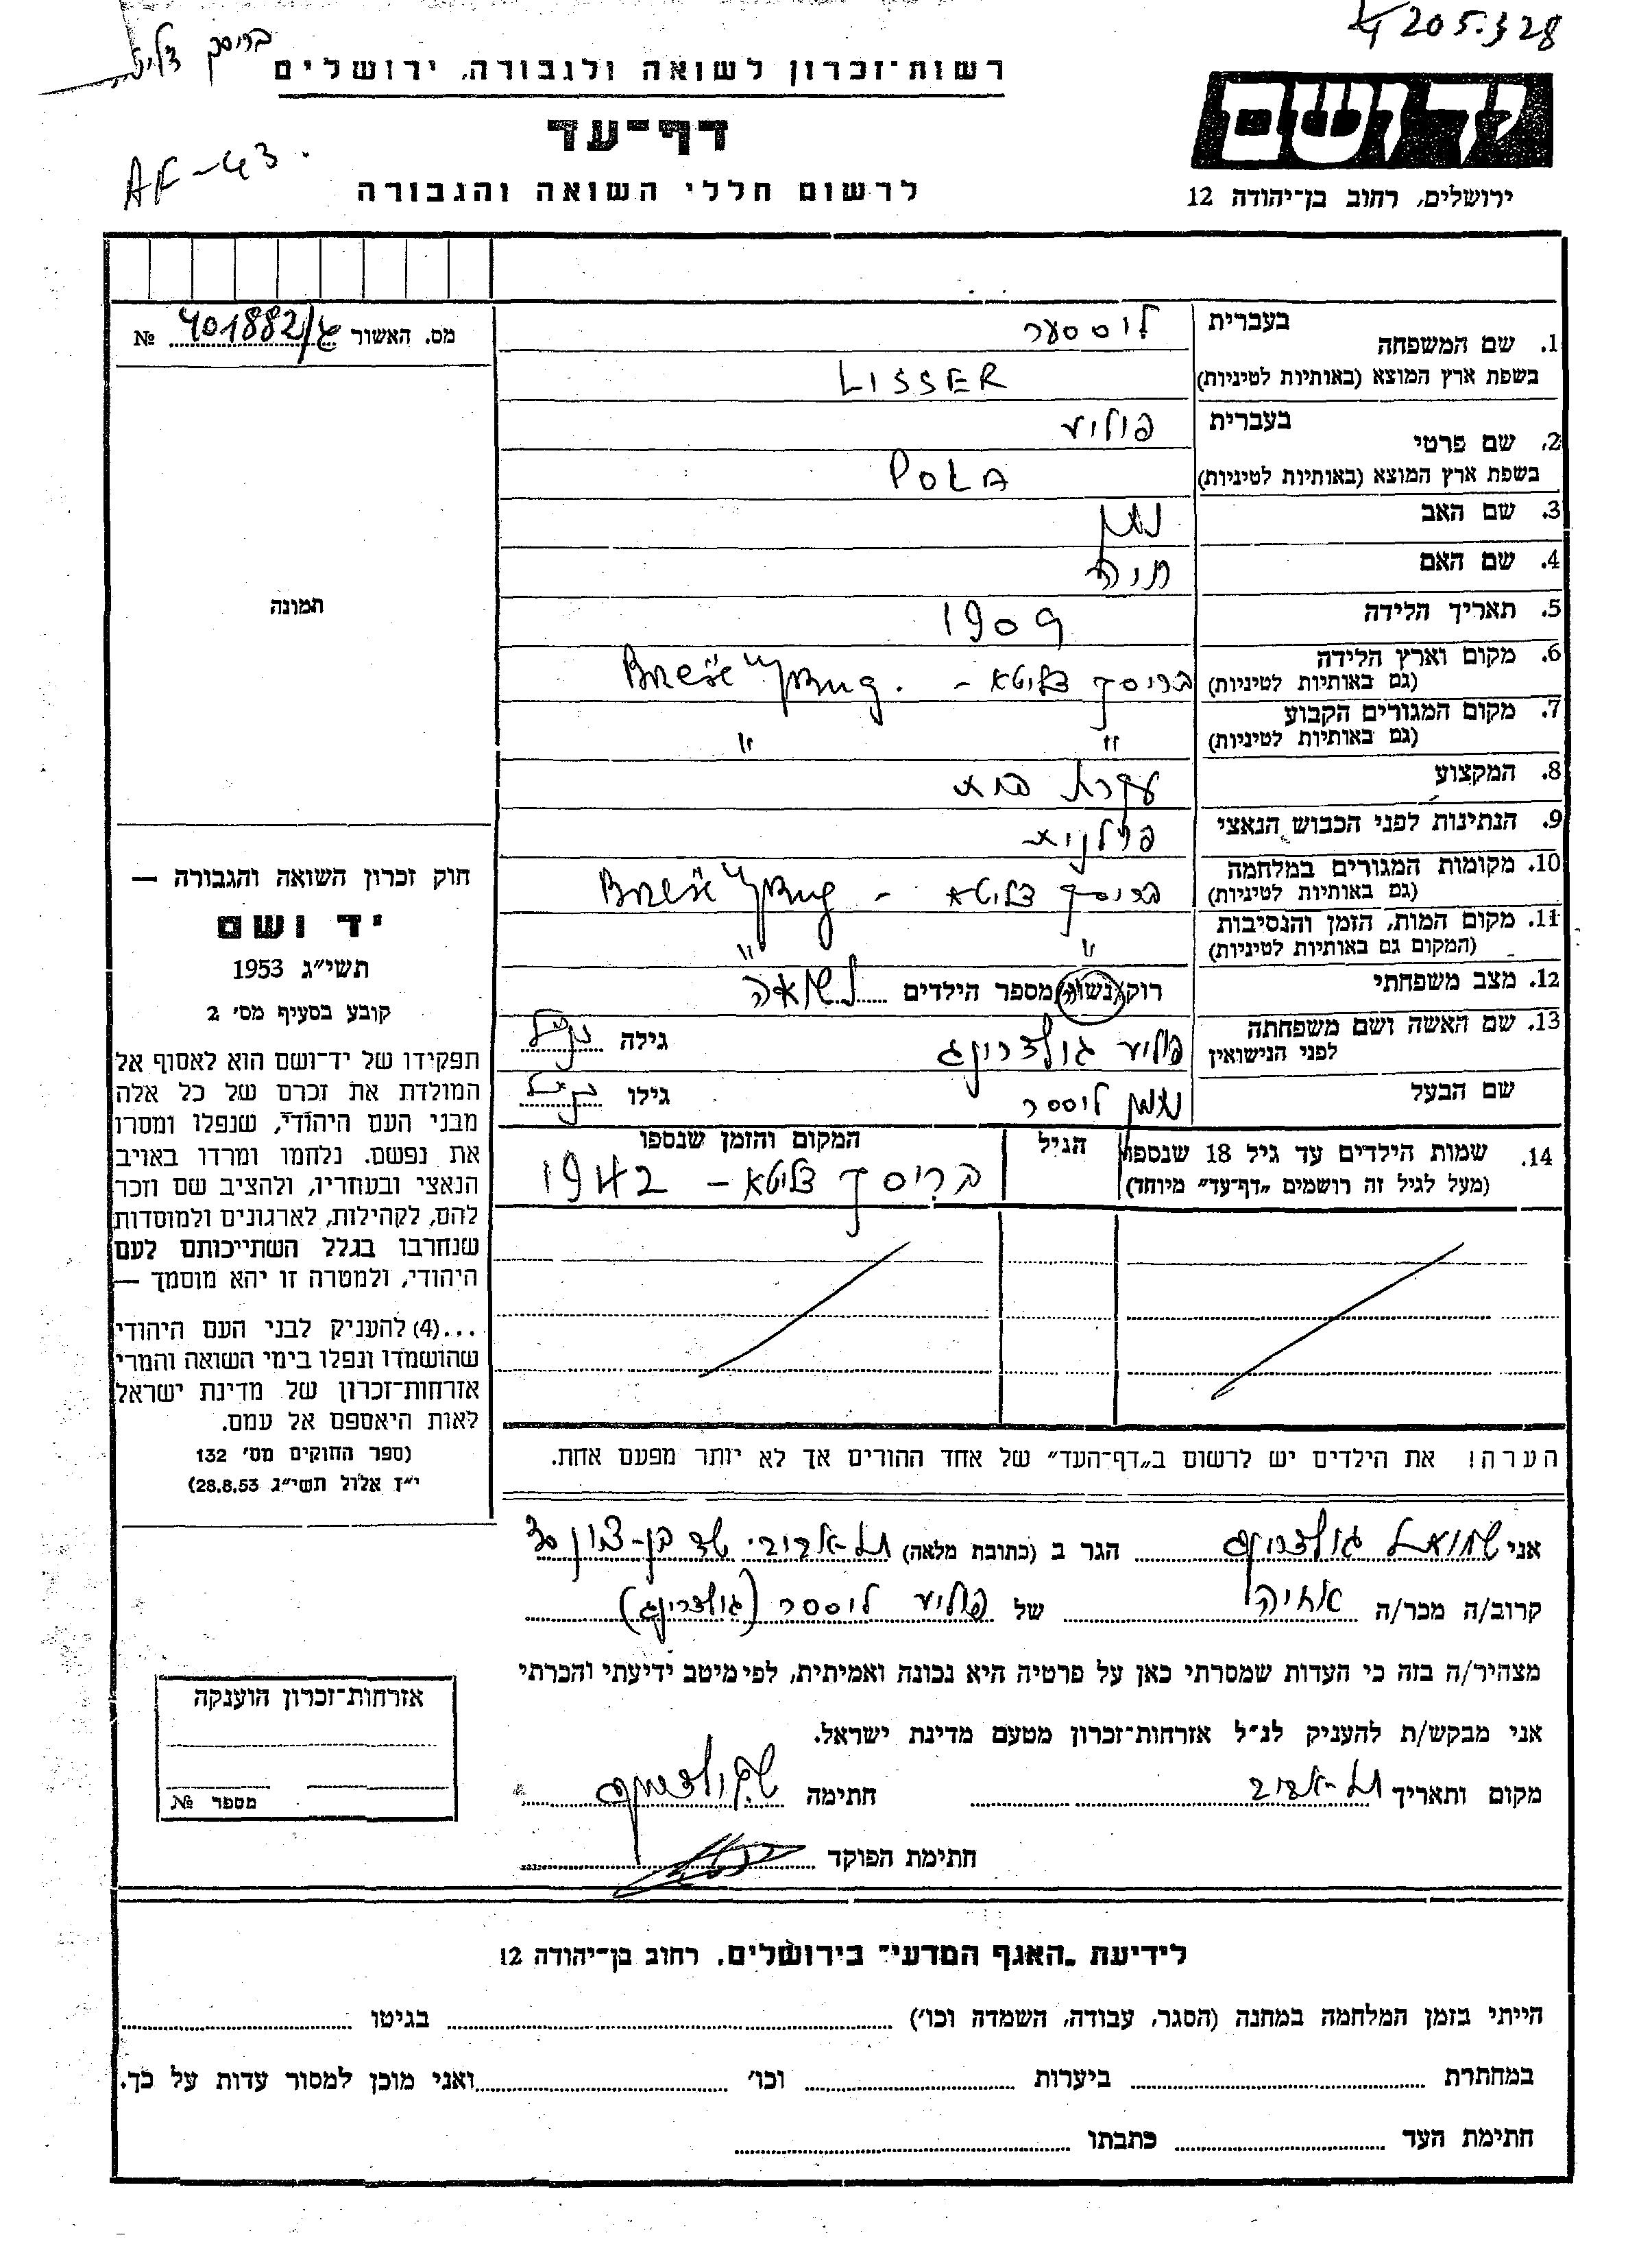 205.328
בריסק דליטא
רשות-זכרון לשואה ולגבורה, ירושלים
דף-עד
AF-43.
לרשום חללי השואה והגבורה
יד ושם
ירושלים, רחוב בן-יהודה 12
מס. האשור 401882/ № 
1. שם המשפחה בעברית ליסטער
בשפת ארץ המוצא (באותיות לטיניות) LISSER
2. שם פרטי בעברית פוליע
בשפת ארץ המוצא (באותיות לטיניות) POLA
3. שם האב נתן
4. שם האם חיה
5. תאריך הלידה 1909
6. מקום וארץ הלידה בריסק דליטא -
(גם באותיות לטיניות)
7. מקום המגורים הקבוע " "
(גם באותיות לטיניות)
8. המקצוע עקרת בית
9. הנתינות לפני הכבוש הנאצי פולנית
10. מקומות המגורים במלחמה בריסק דליטא -
(גם באותיות לטיניות)
11. מקום המות, הזמן והנסיבות " "
(המקום גם באותיות לטיניות)
12. מצב משפחתי רווק/נשוי/ מספר הילדים נשואה
13. שם האשה ושם משפחתה פוליע גולדרינג גילה
לפני הנישואין
שם הבעל ליססר גילו
14. שמות הילדים עד גיל 18 שנספו הגיל המקום והזמן שנספו
(מעל לגיל זה רושמים "דף-עד" מיוחד) בריסק דליטא - 1942
תמונה
חוק זכרון השואה והגבורה —
יד ושם
תשי"ג 1953
קובע בסעיף מס' 2
תפקידו של יד-ושם הוא לאסוף אל
המולדת את זכרם של כל אלה
מבני העם היהודי, שנפלו ומסרו
את נפשם, נלחמו ומרדו באויב
הנאצי ובעוזריו, ולהציב שם וזכר
להם, לקהילות, לארגונים ולמוסדות
שנחרבו בגלל השתייכותם לעם
היהודי, ולמטרה זו יהא מוסמך —
...(4) להעניק לבני העם היהודי
שהושמדו ונפלו בימי השואה והמרי
אזרחות-זכרון של מדינת ישראל
לאות היאספם אל עמם.
(ספר החוקים מס' 132
י"ז אלול תשי"ג 28.8.53)
הערה! את הילדים יש לרשום ב"דף-העד" של אחד ההורים אך לא יותר מפעם אחת.
אני שמואל גולדרינג הגר ב (כתובת מלאה) תל-אביב
קרוב/ה מכר/ה אחיה של פוליע ליססר (גולדרינג)
מצהיר/ה בזה כי העדות שמסרתי כאן על פרטיה היא נכונה ואמיתית, לפי מיטב ידיעתי והכרתי
אני מבקש/ת להעניק לנ"ל אזרחות-זכרון מטעם מדינת ישראל.
מקום ותאריך תל-אביב חתימה ש. גולדרינג
חתימת הפוקד
אזרחות-זכרון הוענקה
מספר №
לידיעת "האגף המדעי" בירושלים, רחוב בן-יהודה 12
הייתי בזמן המלחמה במחנה (הסגר, עבודה, השמדה וכו') בגיטו
במחתרת ביערות וכו' ואני מוכן למסור עדות על כך.
חתימת העד כתבתו